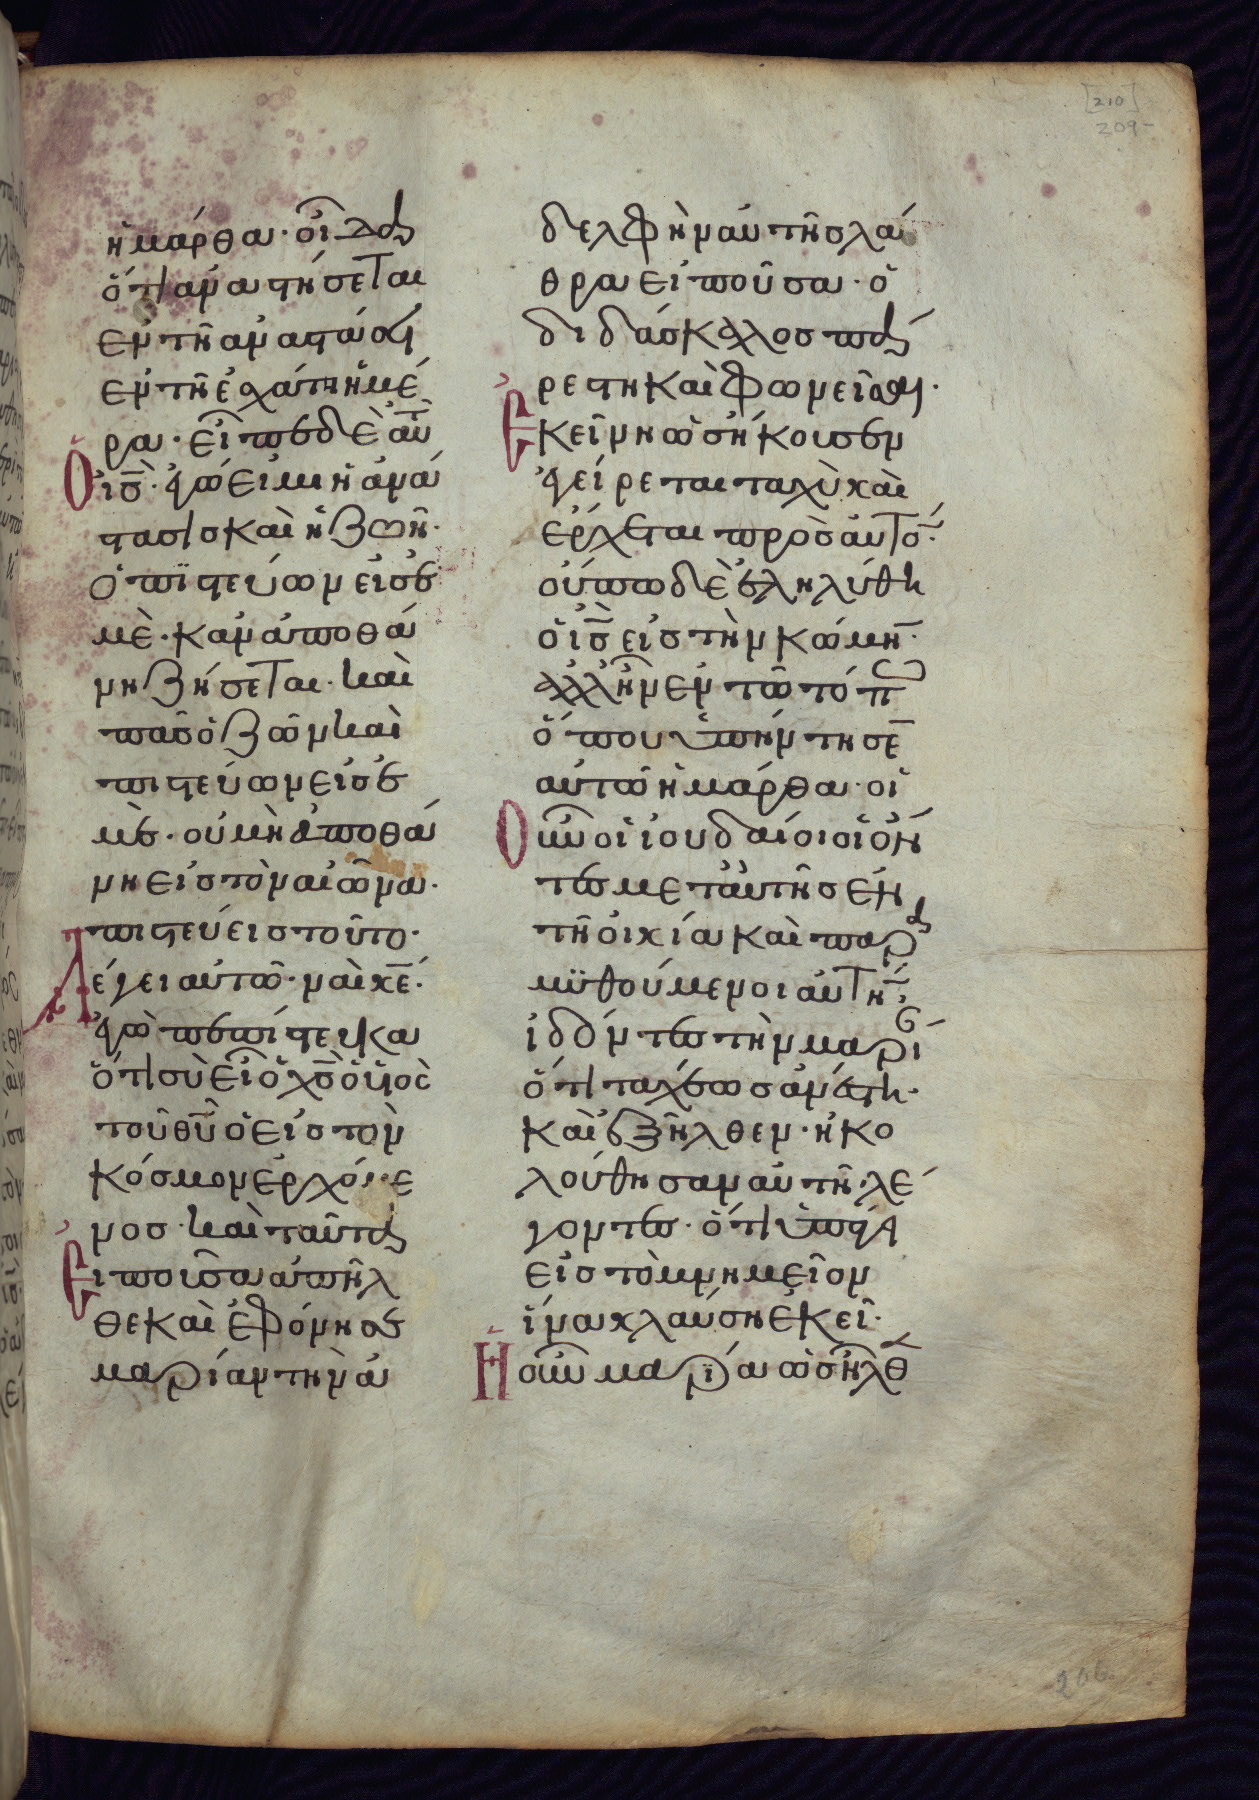 [210]
209
ἡ μάρθα· οἶδα
ὅτι ἀναστήσεται
ἐν τῆ ἀναστάσει
ἐν τῆ ἐσχάτη ἡμέ
ρα· εἶπεν δὲ αὐτῆ
ὁ ις̅· ἐγώ εἰμι ἡ ἀνά
στασις καὶ ἡ ζωή·
ὁ πιστεύων εἰς ἐ
μὲ· κἂν ἀποθά
νη ζήσεται· καὶ
πᾶς ὁ ζῶν καὶ
πιστεύων εἰς ἐ
μὲ· οὐ μὴ ἀποθά
νη εἰς τὸν αἰῶνα·
πιστεύεις τοῦτο·
Λέγει αὐτῶ· ναὶ κ̅ε̅·
ἐγὼ πεπίστευκα
ὅτι σὺ εἶ ὁ χ̅ς̅ ὁ υἱὸς
τοῦ θ̅υ̅ ὁ εἰς τὸν
κόσμον ἐρχόμε
νος· καὶ ταῦτα
Εἰποῦσα ἀπῆλ
θε καὶ ἐφώνησε
μαρίαν τὴν ἀ
δελφὴν αὐτῆς λά
θρα εἰποῦσα· ὁ
διδάσκαλος πά
ρεστη καὶ φωνεῖ σε·
Ἐκείνη ὡς ἤκουσεν
ἐγείρεται ταχὺ καὶ
ἔρχεται πρὸς αὐτό̅·
οὔπω δὲ ἐληλύθη
ὁ ι̅ς̅ εἰς τὴν κώμη̅·
ἀλλ' ἦν ἐν τῶ τόπω
ὅπου ὑπήντησε̅
αὐτῶ ἡ μάρθα· οἱ
Οὖν οἱ ἰουδαίοι οἱ ὄν
τες μετ' αὐτῆς ἐν
τῆ οἰκία καὶ παρα
μϋθούμενοι αὐτή̅·
ἰδόντες τὴν μαρί
ὅτι ταχέως ἀνέστη·
καὶ ἐξῆλθεν· ἠκο
λούθησαν αὐτῆ· λέ
γοντες· ὅτι ὑπάγει
εἰς τὸ μνημεῖον
ἵνα κλαύση ἐκεῖ·
Ἡ οὖν μαρία ὡς ἦλθε
206